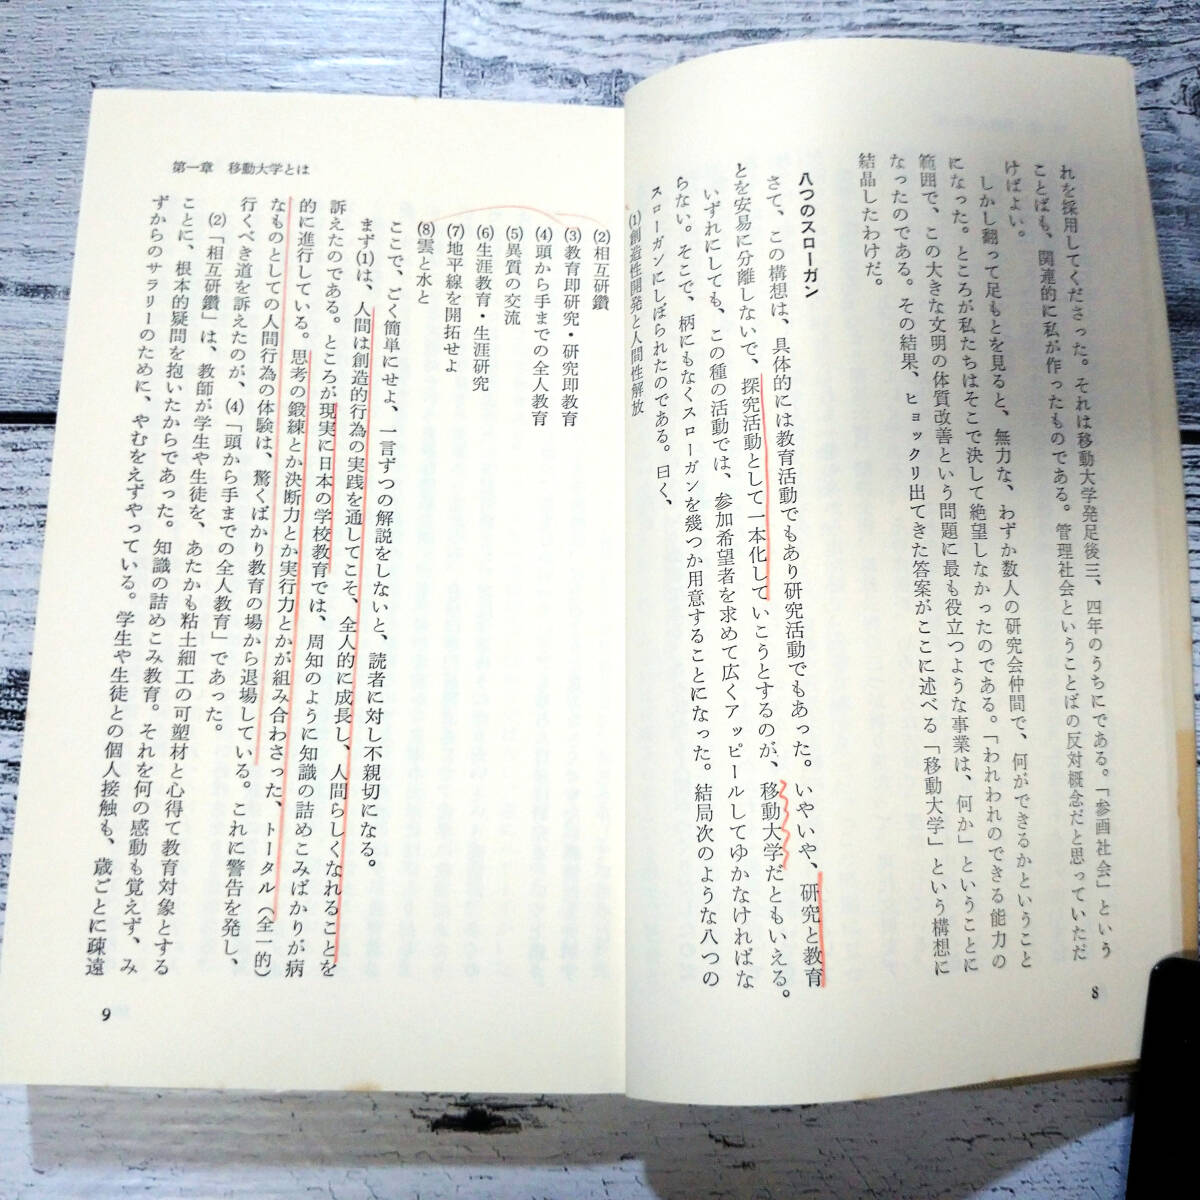 れを採用してくださった。それは移動大学発足後三、四年のうちにである。「参画社会」という
ことばも、関連的に私が作ったものである。管理社会ということばの反対概念だと思っていただ
けばよい。
しかし翻って足もとを見ると、無力な、わずか数人の研究会仲間で、何ができるかということ
になった。ところが私たちはそこで決して絶望しなかったのである。「われわれのできる能力の
範囲で、この大きな文明の体質改善という問題に最も役立つような事業は、何か」ということに
なったのである。その結果、ヒョックリ出てきた答案がここに述べる「移動大学」という構想に
結晶したわけだ。
八つのスローガン
さて、この構想は、具体的には教育活動でもあり研究活動でもあった。いやいや、研究と教育
とを安易に分離しないで、探究活動として一本化していこうとするのが、移動大学だともいえる。
いずれにしても、この種の活動では、参加希望者を求めて広くアッピールしてゆかなければな
らない。そこで、柄にもなくスローガンを幾つか用意することになった。結局次のような八つの
スローガンにしぼられたのである。曰く、
(1)創造性開発と人間性解放
8
(2)相互研鑽
(3)教育即研究・研究即教育
(4)頭から手までの全人教育
(5)異質の交流
(6)生涯教育・生涯研究
(7)地平線を開拓せよ
(8)雲と水と
ここで、ごく簡単にせよ、一言ずつの解説をしないと、読者に対し不親切になる。
まず(1)は、人間は創造的行為の実践を通してこそ、全人的に成長し、人間らしくなれることを
訴えたのである。ところが現実に日本の学校教育では、周知のように知識の詰めこみばかりが病
的に進行している。思考の鍛練とか決断力とか実行力とかが組み合わさった、トータル(全一的)
なものとしての人間行為の体験は、驚くばかり教育の場から退場している。これに警告を発し、
行くべき道を訴えたのが、(4)「頭から手までの全人教育」であった。
(2)「相互研鑽」は、教師が学生や生徒を、あたかも粘土細工の可塑材と心得て教育対象とする
ことに、根本的疑問を抱いたからであった。知識の詰めこみ教育。それを何の感動も覚えず、み
ずからのサラリーのために、やむをえずやっている。学生や生徒との個人接触も、歳ごとに疎遠
第一章 移動大学とは
9